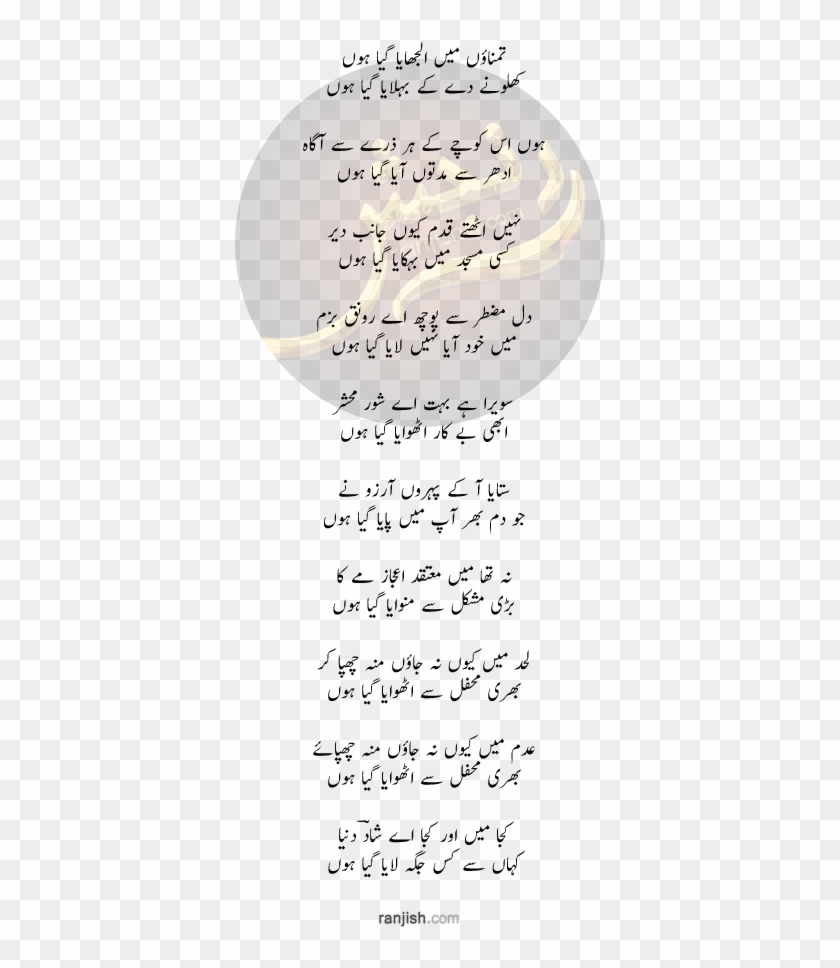 تمناؤں میں الجھایا گیا ہوں
کھلونے دے کے بہلایا گیا ہوں
ہوں اس کوچے کے ہر ذرے سے آگاہ
ادھر سے مدتوں آیا گیا ہوں
نہیں اٹھتے قدم کیوں جانب دیر
کسی مسجد میں بہکایا گیا ہوں
دل مضطر سے پوچھ اے رونق بزم
میں خود آیا نہیں لایا گیا ہوں
سویرا ہے بہت اے شور محشر
ابھی بے کار اٹھوایا گیا ہوں
ستایا آ کے پہروں آرزو نے
جو دم بھر آپ میں پایا گیا ہوں
نہ تھا میں معتقد اعجاز مے کا
بڑی مشکل سے منوایا گیا ہوں
لحد میں کیوں نہ جاؤں منہ چھپا کر
بھری محفل سے اٹھوایا گیا ہوں
عدم میں کیوں نہ جاؤں منہ چھپائے
بھری محفل سے اٹھوایا گیا ہوں
کجا میں اور کجا اے شادؔ دنیا
کہاں سے کس جگہ لایا گیا ہوں
ranjish.com